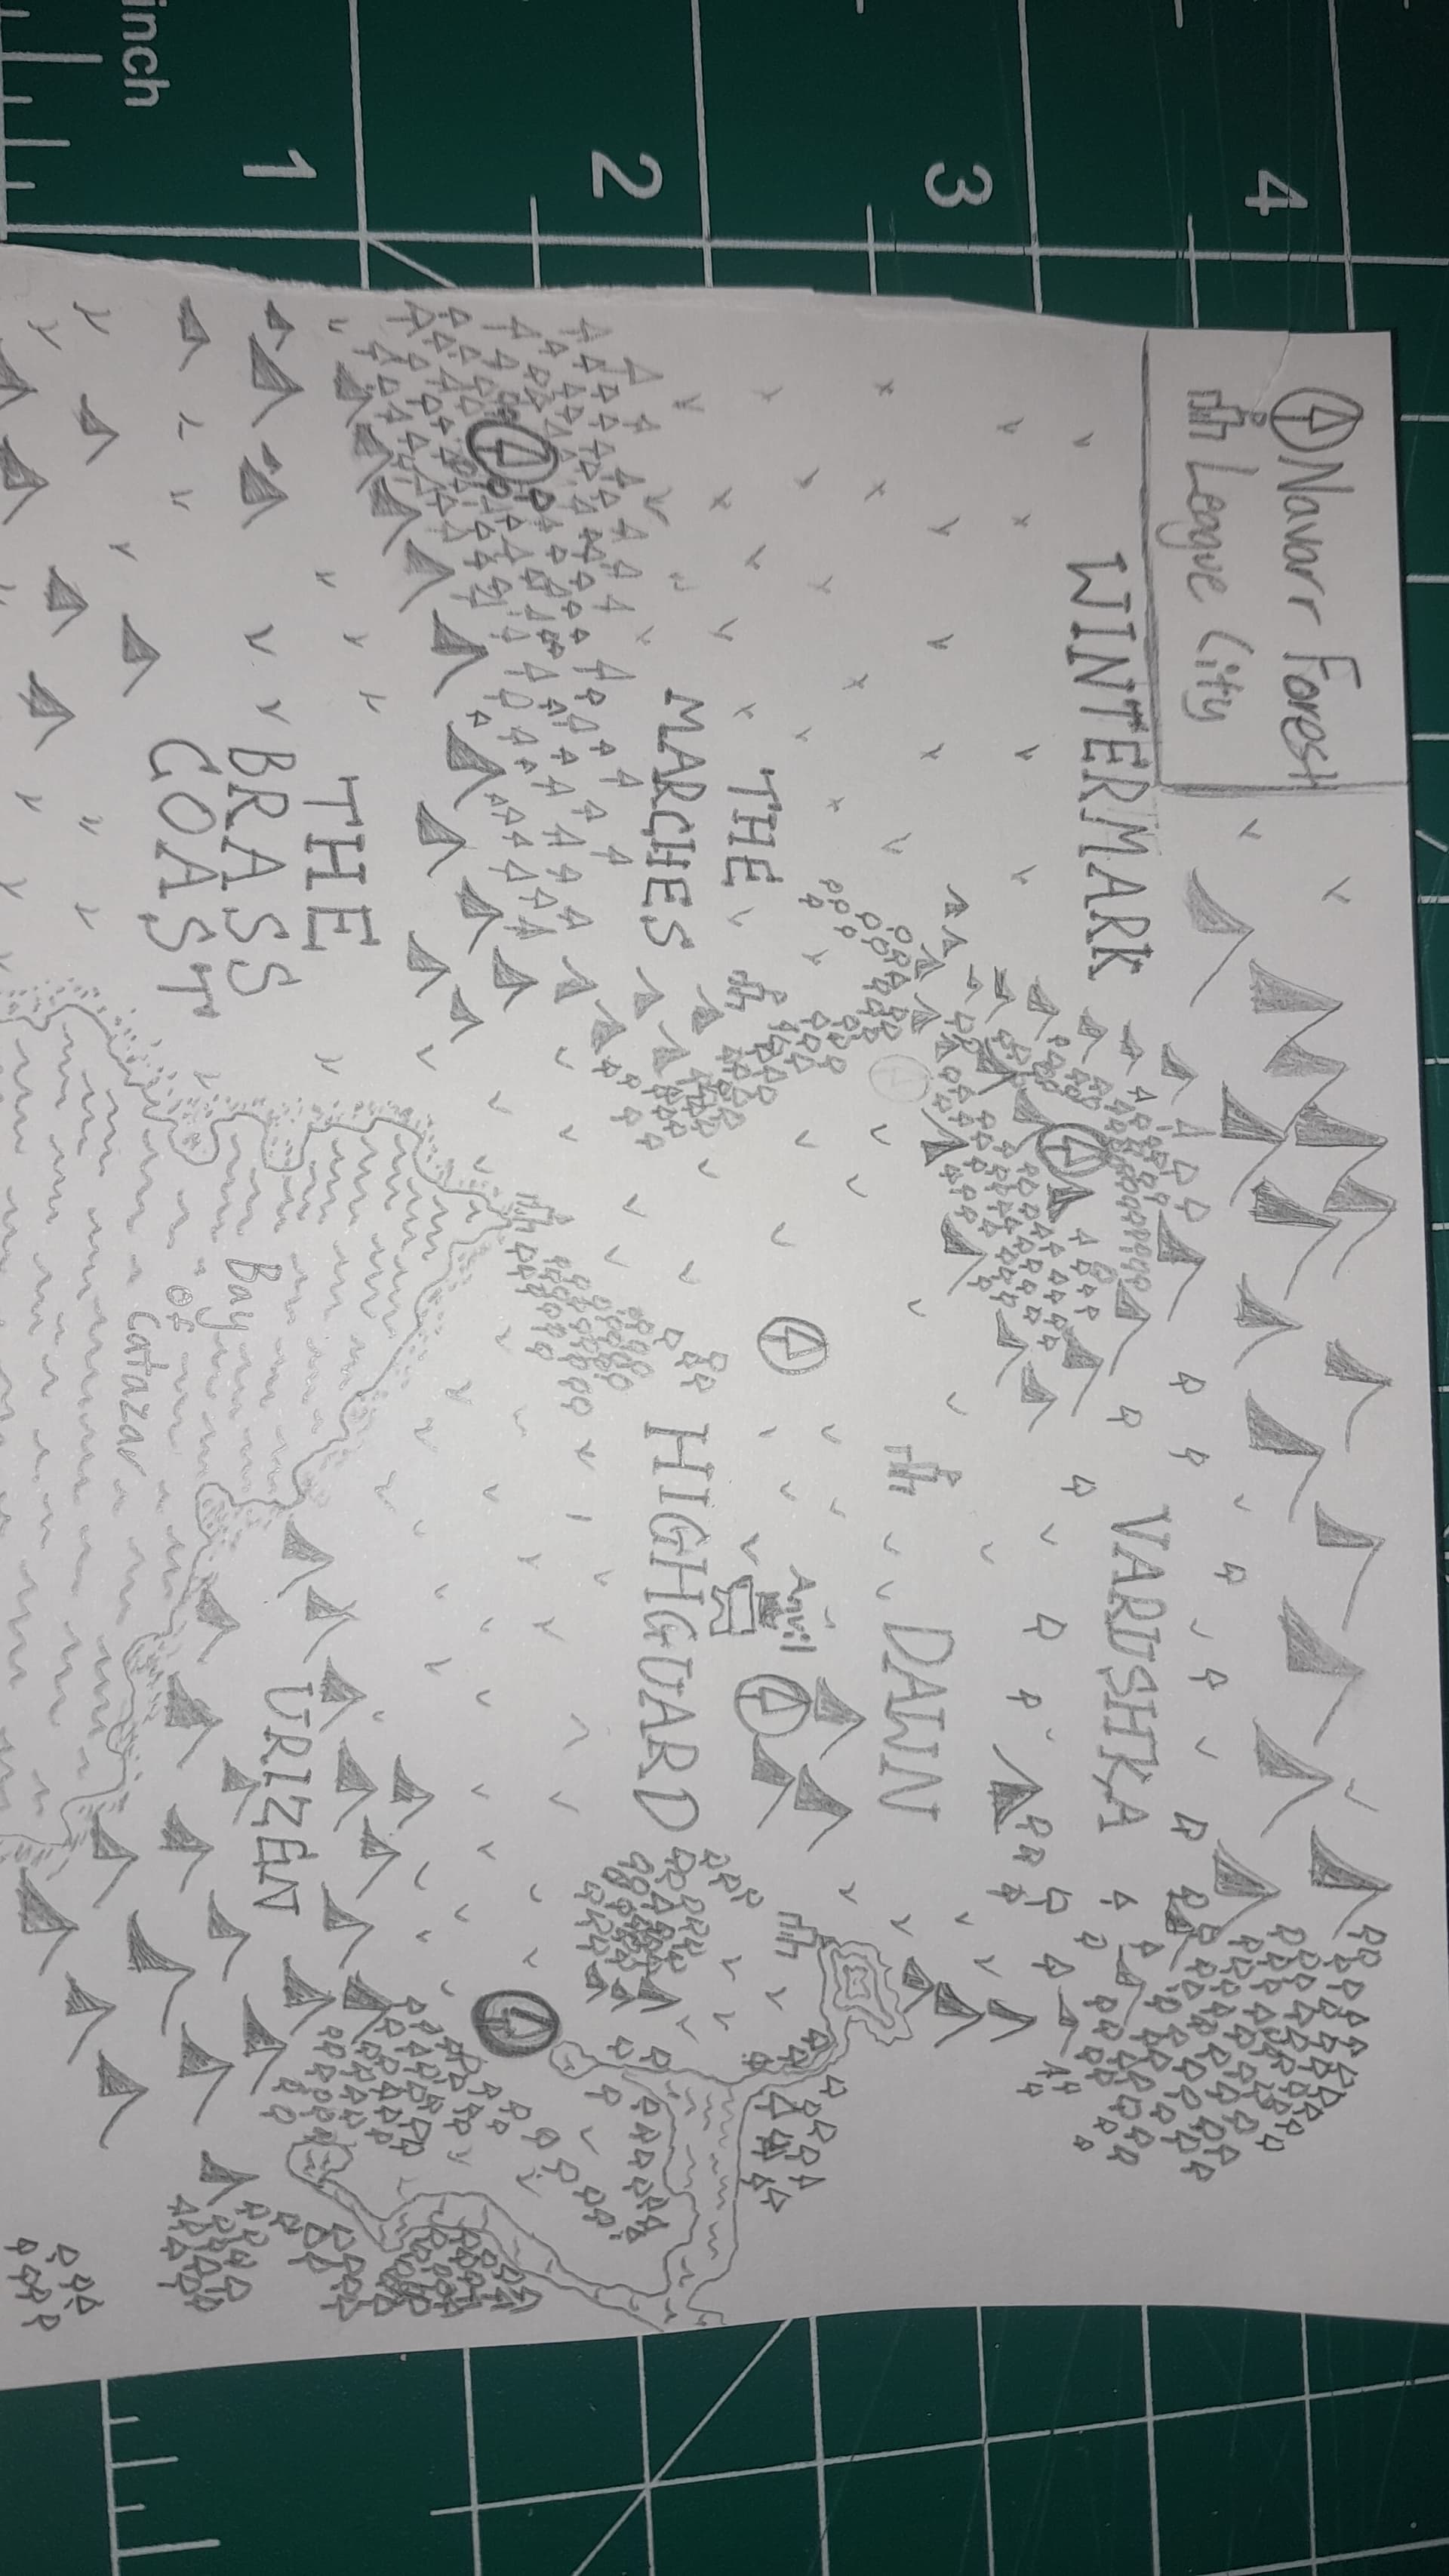 Navarr Forest
League City
WINTERMARK
VARUSHKA
THE
MARCHES
DAWN
Anvil
HIGHGUARD
THE
BRASS
COAST
Bay
of
Catazar
URIZEN
inch
1
2
3
4